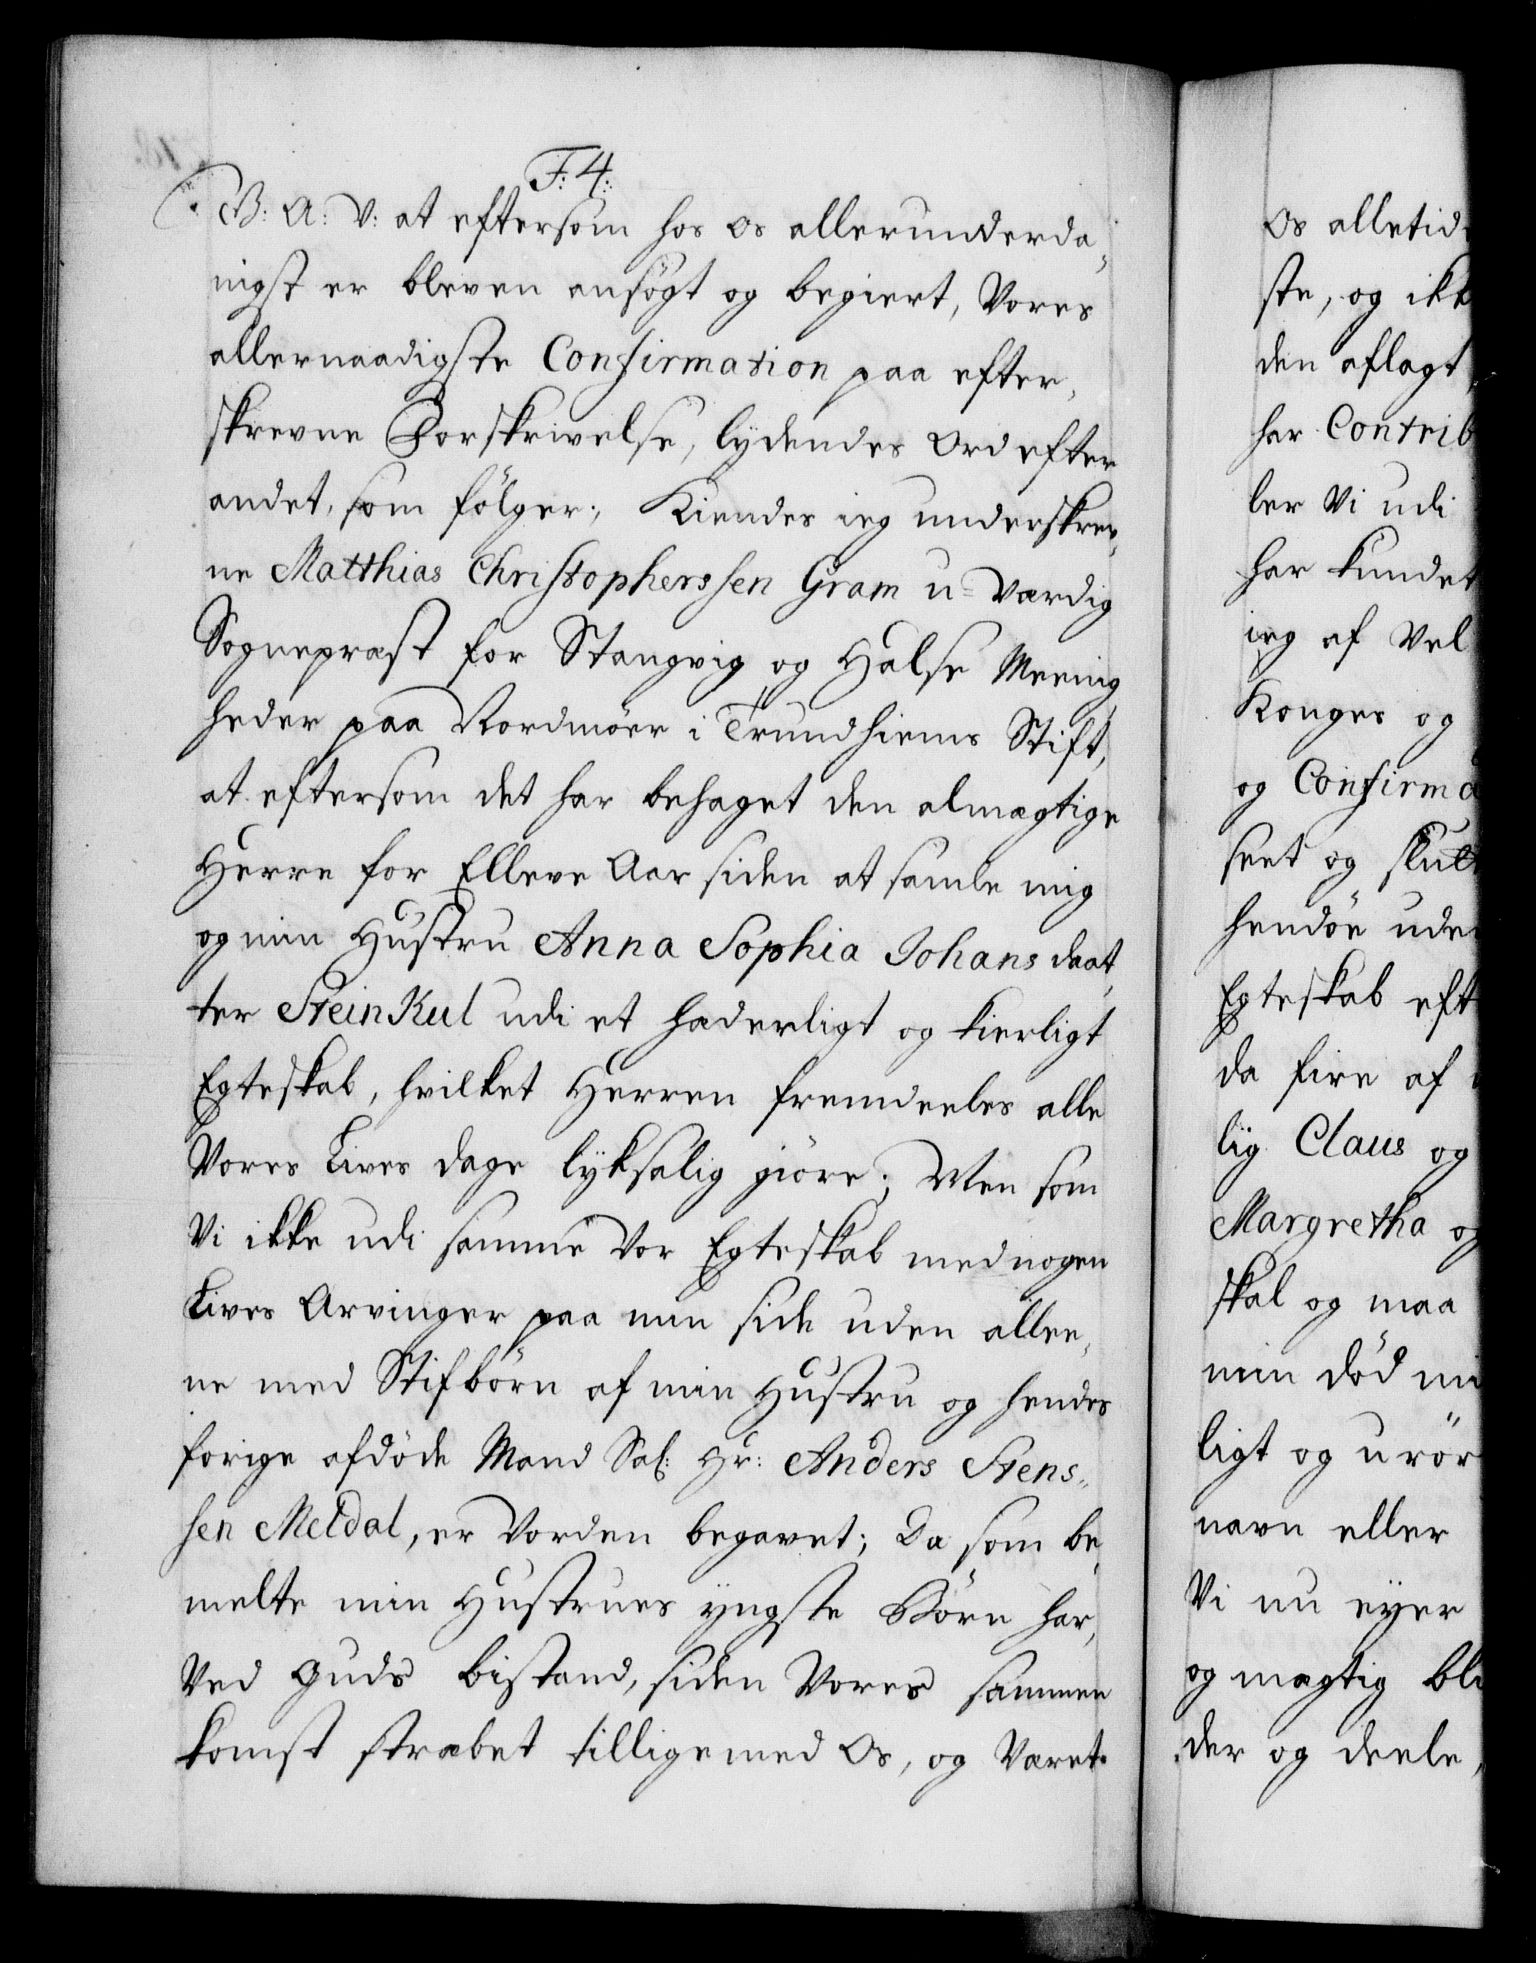 F: 4:
G: A: V: at eftersom hos os allerunderda„
nigst er bleven ansøgt og begiert, Vores
allernaadigste Confirmation paa efter„
skrevne Forskrivelse, lydendes Ord efter
andet, som følger; Kiendes ieg underskrev„
ne Matthias Christopherssen Gram u-værdig
Sognepræst for Stangvig og Halse Meenig„
heder paa Nordmöer i Trundhiems Stift,
at eftersom det har behaget den almægtige
Herre for Elleve Aar siden at samle mig
og min Hustru Anna Sophia Johans daat„
ter SteinKul udi et hæderligt og kierligt
Egteskab, hvilket Herren fremdeeles alle
Vores Lives dage lyksalig giöre; Men som
Vi ikke udi samme Vor Egteskab med nogen
Lives Arvinger paa min side uden allee„
ne med Stifbörn af min Hustru og hendes
forige afdöde Mand Sal: Hr: Anders Stens„
sen Meldal, er Vorden begavet; Da som be„
melte min Hustrues yngste Börn har,
Ved Guds bistand, siden Vores sammen
komst stræbet tilligemed Os, og Været
Os alletid
ste, og ikk
den aflagt
har Contrib
ler Vi udi
har kundet
ieg af Vel
Konges og
og Confirma
seet og slut
hendöe uden
Egteskab eft
da fire af
lig Claus og
Margretha og
skal og maa
min död mi
ligt og urör
navn eller
Vi nu eyer
og mægtig bli
der og deele,